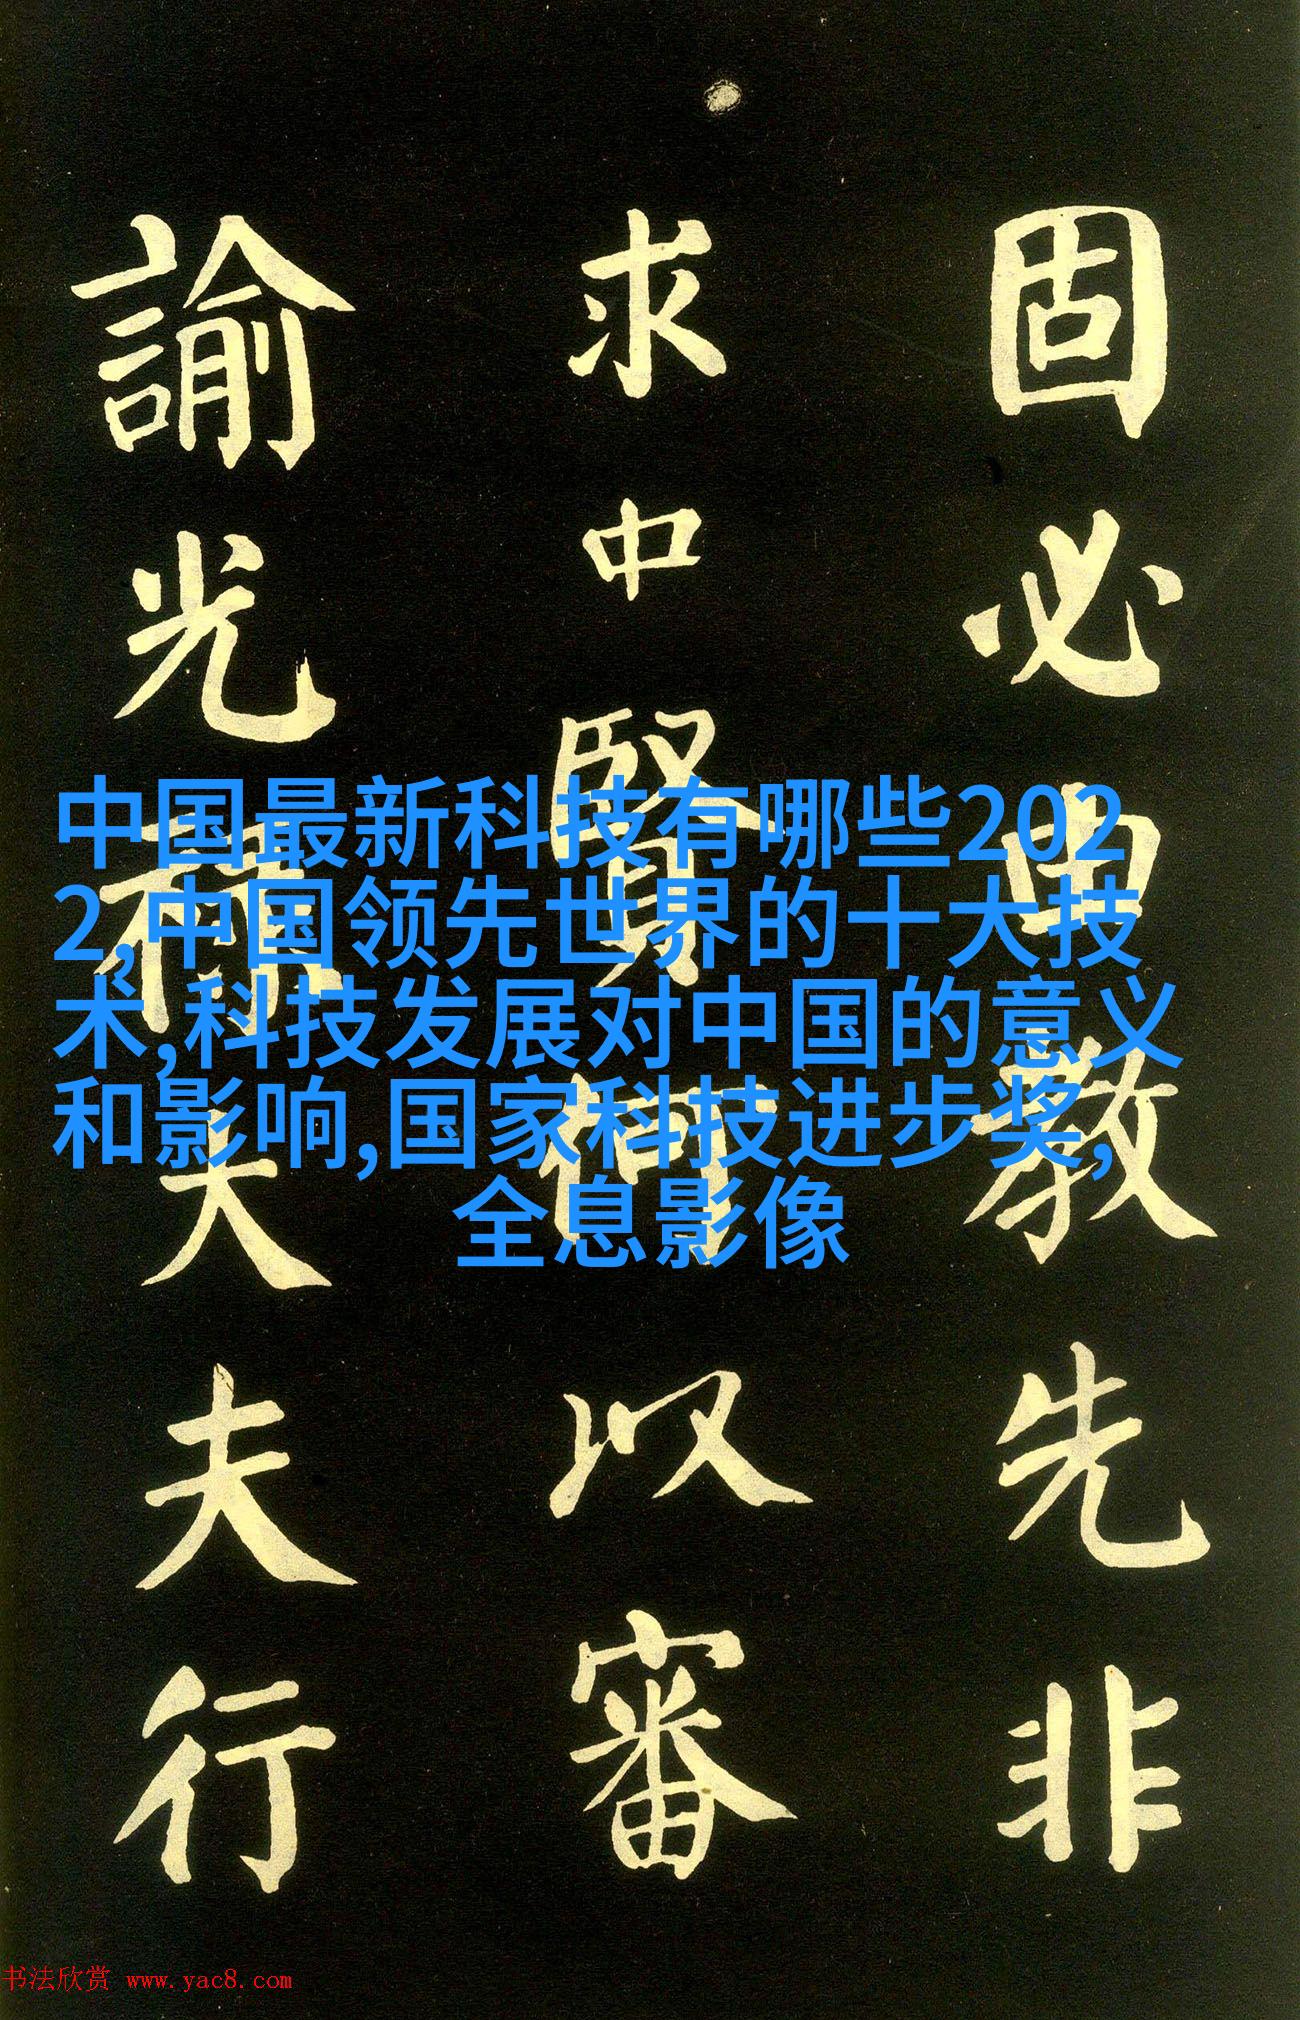 固必由教先非
求中賢何以審
諭光祿大夫行
中国最新科技有哪些202
2,中国领先世界的十大技
术,科技发展对中国的意义
和影响,国家科技进步奖,
全息影像
书法欣赏 www.yac8.com